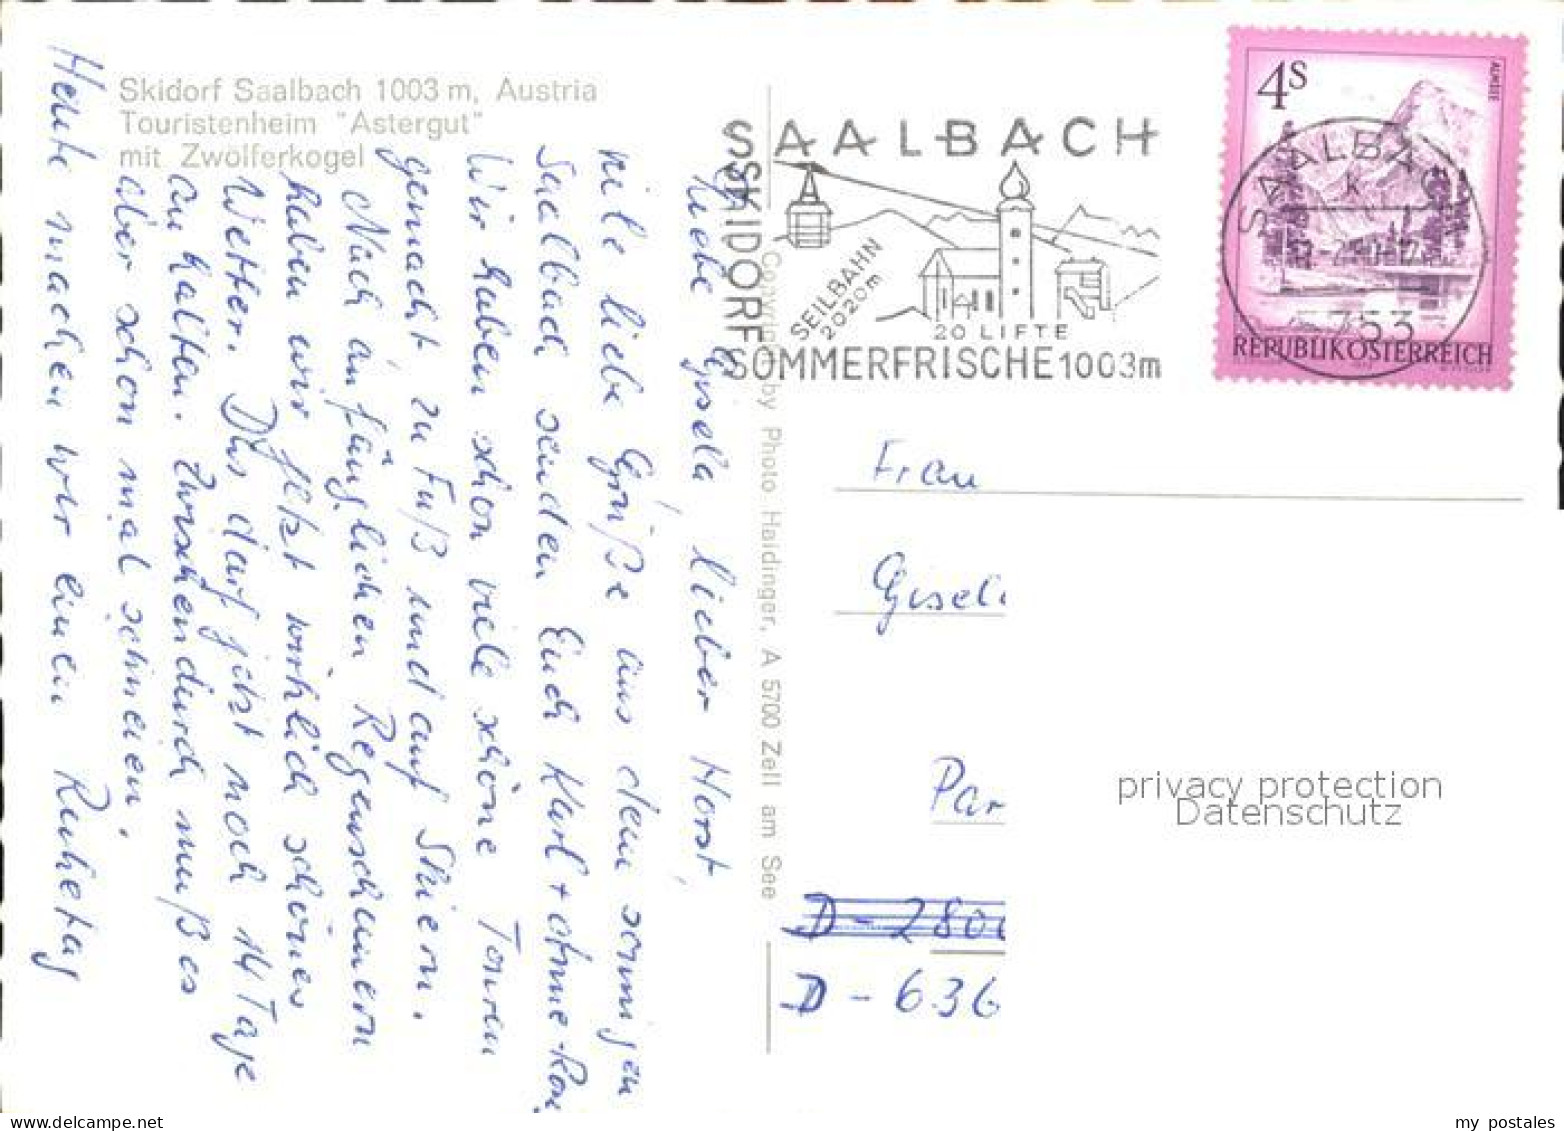 Skidorf Saalbach 1003 m, Austria
Touristenheim "Astergut"
mit Zwölferkogel
Liebe Gisela, lieber Horst,
viele liebe Grüße aus dem sonnigen
Saalbach senden Euch Karl +
Wir haben schon viele schöne Touren
gemacht zu Fuß und auf Skiern.
Nach anfänglichen Regenschauern
haben wir jetzt wirklich schönes
Wetter. Das darf jetzt noch 14 Tage
an halten. Zwischendurch muß es
aber schon mal schneien.
Heute machen wir einen Ruhetag
Copyright by Photo Haidinger, A 5700 Zell am See
SAALBACH
SKIDORF
SEILBAHN
2020m
20 LIFTE
SOMMERFRISCHE 1003m
4S
ALMSEE
SAALBACH
5753
REPUBLIK ÖSTERREICH
Frau
Gisel
Par
D-280
D-636
privacy protection
Datenschutz
my postales